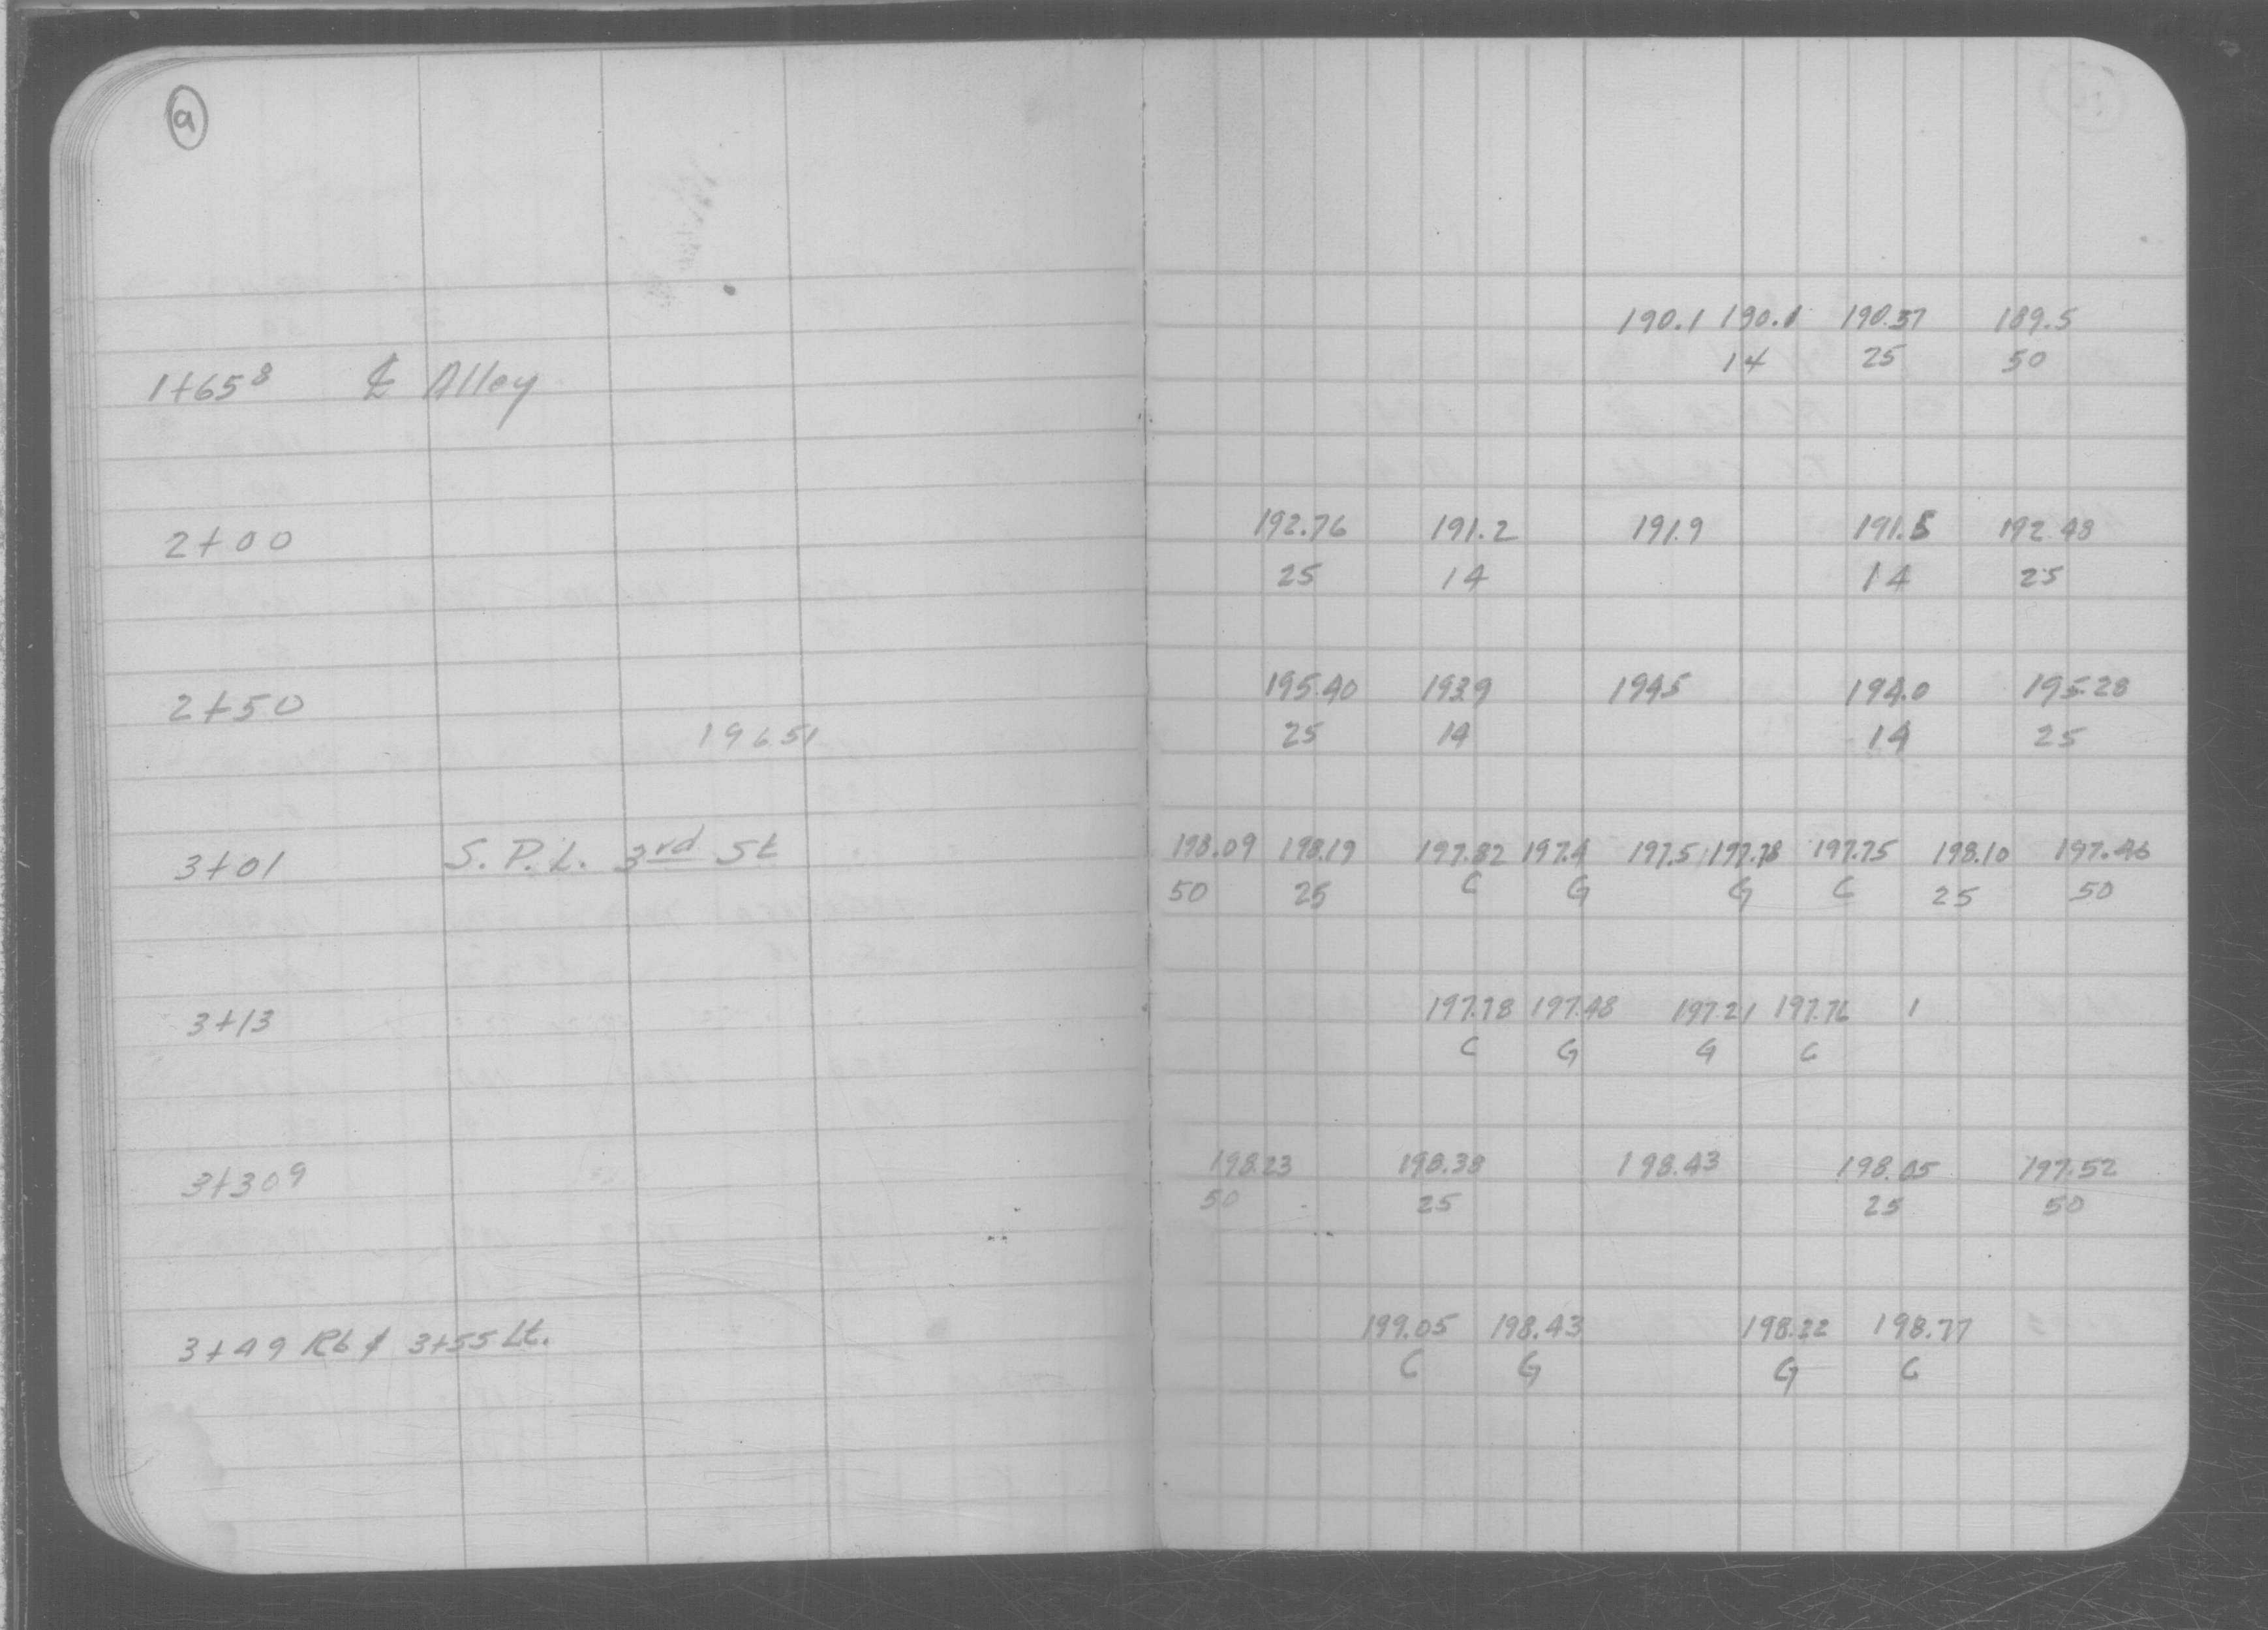 9
190.1 190.1 190.37 189.5
14 25 50
1+65⁸ ℄ Alley
2+00 192.76 191.2 191.9 191.5 192.48
25 14 14 25
2+50 195.40 193.9 194.5 194.0 195.28
196.51 25 14 14 25
3+01 S.P.L. 3rd St 198.09 198.19 197.82 197.4 197.5 197.78 197.75 198.10 197.46
50 25 C G G C 25 50
3+13 197.78 197.48 197.21 197.76 1
C G G C
3+30⁹ 198.23 198.38 198.43 198.05 197.52
50 25 25 50
3+49 Rt & 3+55 Lt. 199.05 198.43 198.22 198.77
C G G C